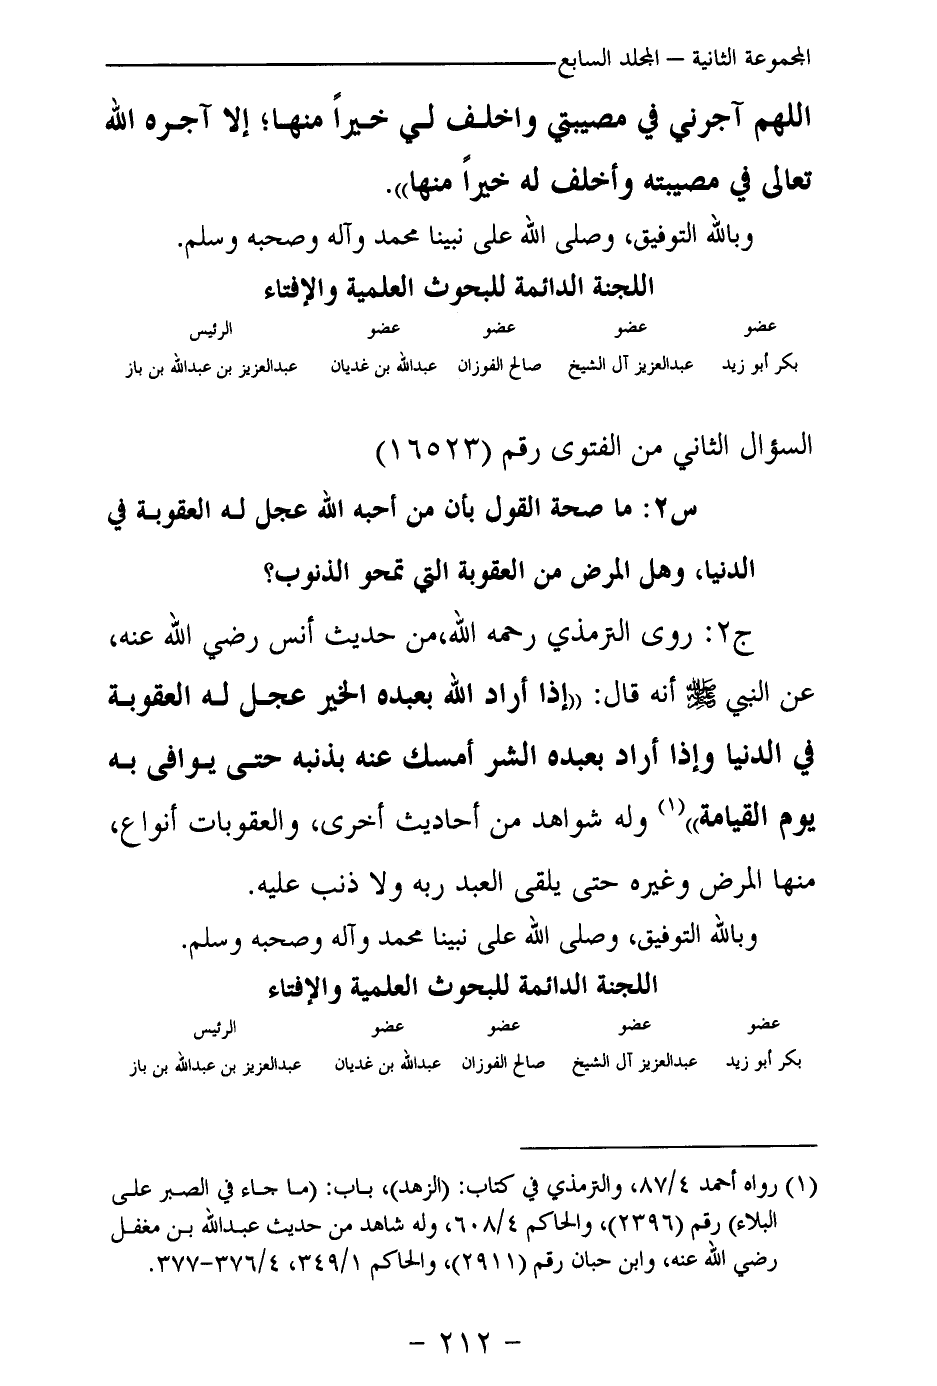 المجموعة الثانية – المجلد السابع
اللهم آجرني في مصيبتي واخلف لي خيراً منها؛ إلا آجره الله
تعالى في مصيبته وأخلف له خيراً منها)).
وبالله التوفيق، وصلى الله على نبينا محمد وآله وصحبه وسلم.
اللجنة الدائمة للبحوث العلمية والإفتاء
عضو عضو عضو عضو الرئيس
بكر أبو زيد عبدالعزيز آل الشيخ صالح الفوزان عبدالله بن غديان عبدالعزيز بن عبدالله بن باز
السؤال الثاني من الفتوى رقم (١٦٥٢٣)
س٢: ما صحة القول بأن من أحبه الله عجل له العقوبة في
الدنيا، وهل المرض من العقوبة التي تمحو الذنوب؟
ج٢: روى الترمذي رحمه الله،من حديث أنس رضي الله عنه،
عن النبي ﷺ أنه قال: ((إذا أراد الله بعبده الخير عجل له العقوبة
في الدنيا وإذا أراد بعبده الشر أمسك عنه بذنبه حتى يوافى به
يوم القيامة))(١) وله شواهد من أحاديث أخرى، والعقوبات أنواع،
منها المرض وغيره حتى يلقى العبد ربه ولا ذنب عليه.
وبالله التوفيق، وصلى الله على نبينا محمد وآله وصحبه وسلم.
اللجنة الدائمة للبحوث العلمية والإفتاء
عضو عضو عضو عضو الرئيس
بكر أبو زيد عبدالعزيز آل الشيخ صالح الفوزان عبدالله بن غديان عبدالعزيز بن عبدالله بن باز
(١) رواه أحمد ٨٧/٤، والترمذي في كتاب: (الزهد)، باب: (ما جاء في الصبر على
البلاء) رقم (٢٣٩٦)، والحاكم ٦٠٨/٤، وله شاهد من حديث عبدالله بن مغفل
رضي الله عنه، وابن حبان رقم (٢٩١١)، والحاكم ٣٤٩/١، ٣٧٦/٤–٣٧٧.
– ٢١٢ –